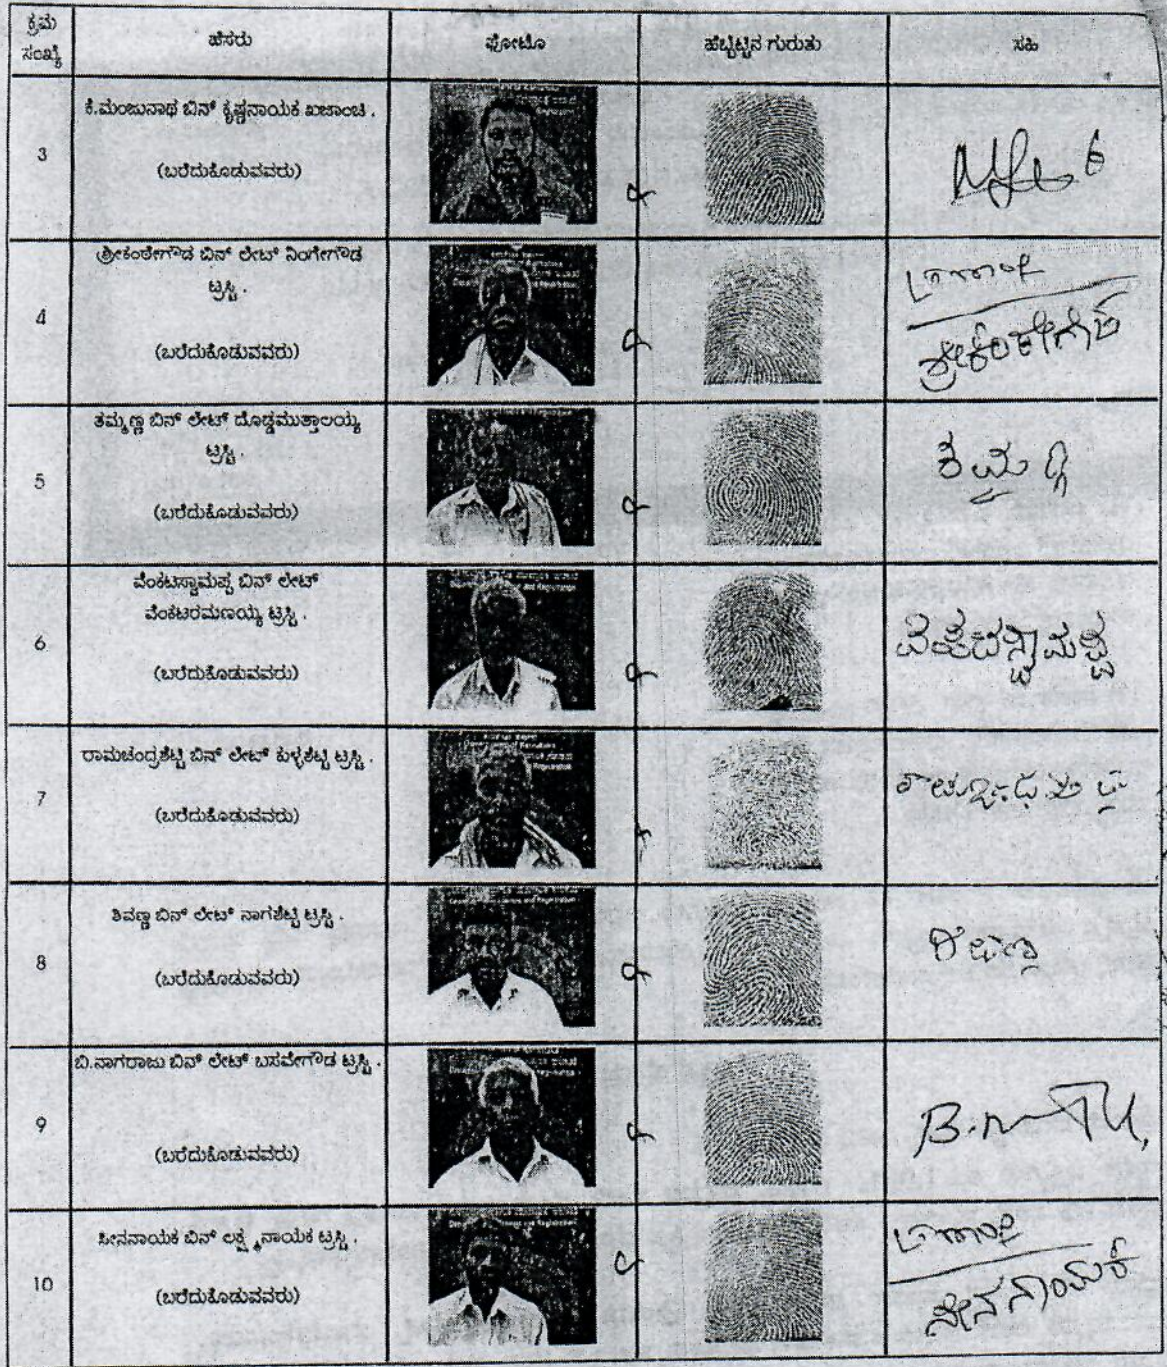 ಕ್ರಮ ಸಂಖ್ಯೆ ಹೆಸರು ಫೋಟೊ ಹೆಬ್ಬೆಟ್ಟಿನ ಗುರುತು ಸಹಿ
ಕೆ.ಮಂಜುನಾಥ ಬಿನ್ ಕೃಷ್ಣನಾಯಕ ಖಜಾಂಚಿ .
3
(ಬರೆದುಕೊಡುವವರು)
ಶ್ರೀಕಂಠೇಗೌಡ ಬಿನ್ ಲೇಟ್ ನಿಂಗೇಗೌಡ
ಟ್ರಸ್ಟಿ .
4
(ಬರೆದುಕೊಡುವವರು)
ಶ್ರೀಕಂಠೇಗೌಡ
ತಮ್ಮಣ್ಣ ಬಿನ್ ಲೇಟ್ ದೊಡ್ಡಮುತ್ತಾಲಯ್ಯ
ಟ್ರಸ್ಟಿ .
5
(ಬರೆದುಕೊಡುವವರು)
ವೆಂಕಟಸ್ವಾಮಪ್ಪ ಬಿನ್ ಲೇಟ್
ವೆಂಕಟರಮಣಯ್ಯ ಟ್ರಸ್ಟಿ .
6
(ಬರೆದುಕೊಡುವವರು)
ವೆಂಕಟಸ್ವಾಮಪ್ಪ
ರಾಮಚಂದ್ರಶೆಟ್ಟಿ ಬಿನ್ ಲೇಟ್ ಕುಳ್ಳಶೆಟ್ಟಿ ಟ್ರಸ್ಟಿ .
7
(ಬರೆದುಕೊಡುವವರು)
ಶಿವಣ್ಣ ಬಿನ್ ಲೇಟ್ ನಾಗಶೆಟ್ಟಿ ಟ್ರಸ್ಟಿ .
8
(ಬರೆದುಕೊಡುವವರು)
ಶಿವಣ್ಣ
ಬಿ.ನಾಗರಾಜು ಬಿನ್ ಲೇಟ್ ಬಸವೇಗೌಡ ಟ್ರಸ್ಟಿ .
9
(ಬರೆದುಕೊಡುವವರು)
ಸೀನನಾಯಕ ಬಿನ್ ಲಕ್ಷ್ಮನಾಯಕ ಟ್ರಸ್ಟಿ .
10
(ಬರೆದುಕೊಡುವವರು)
ಸೀನನಾಯಕ